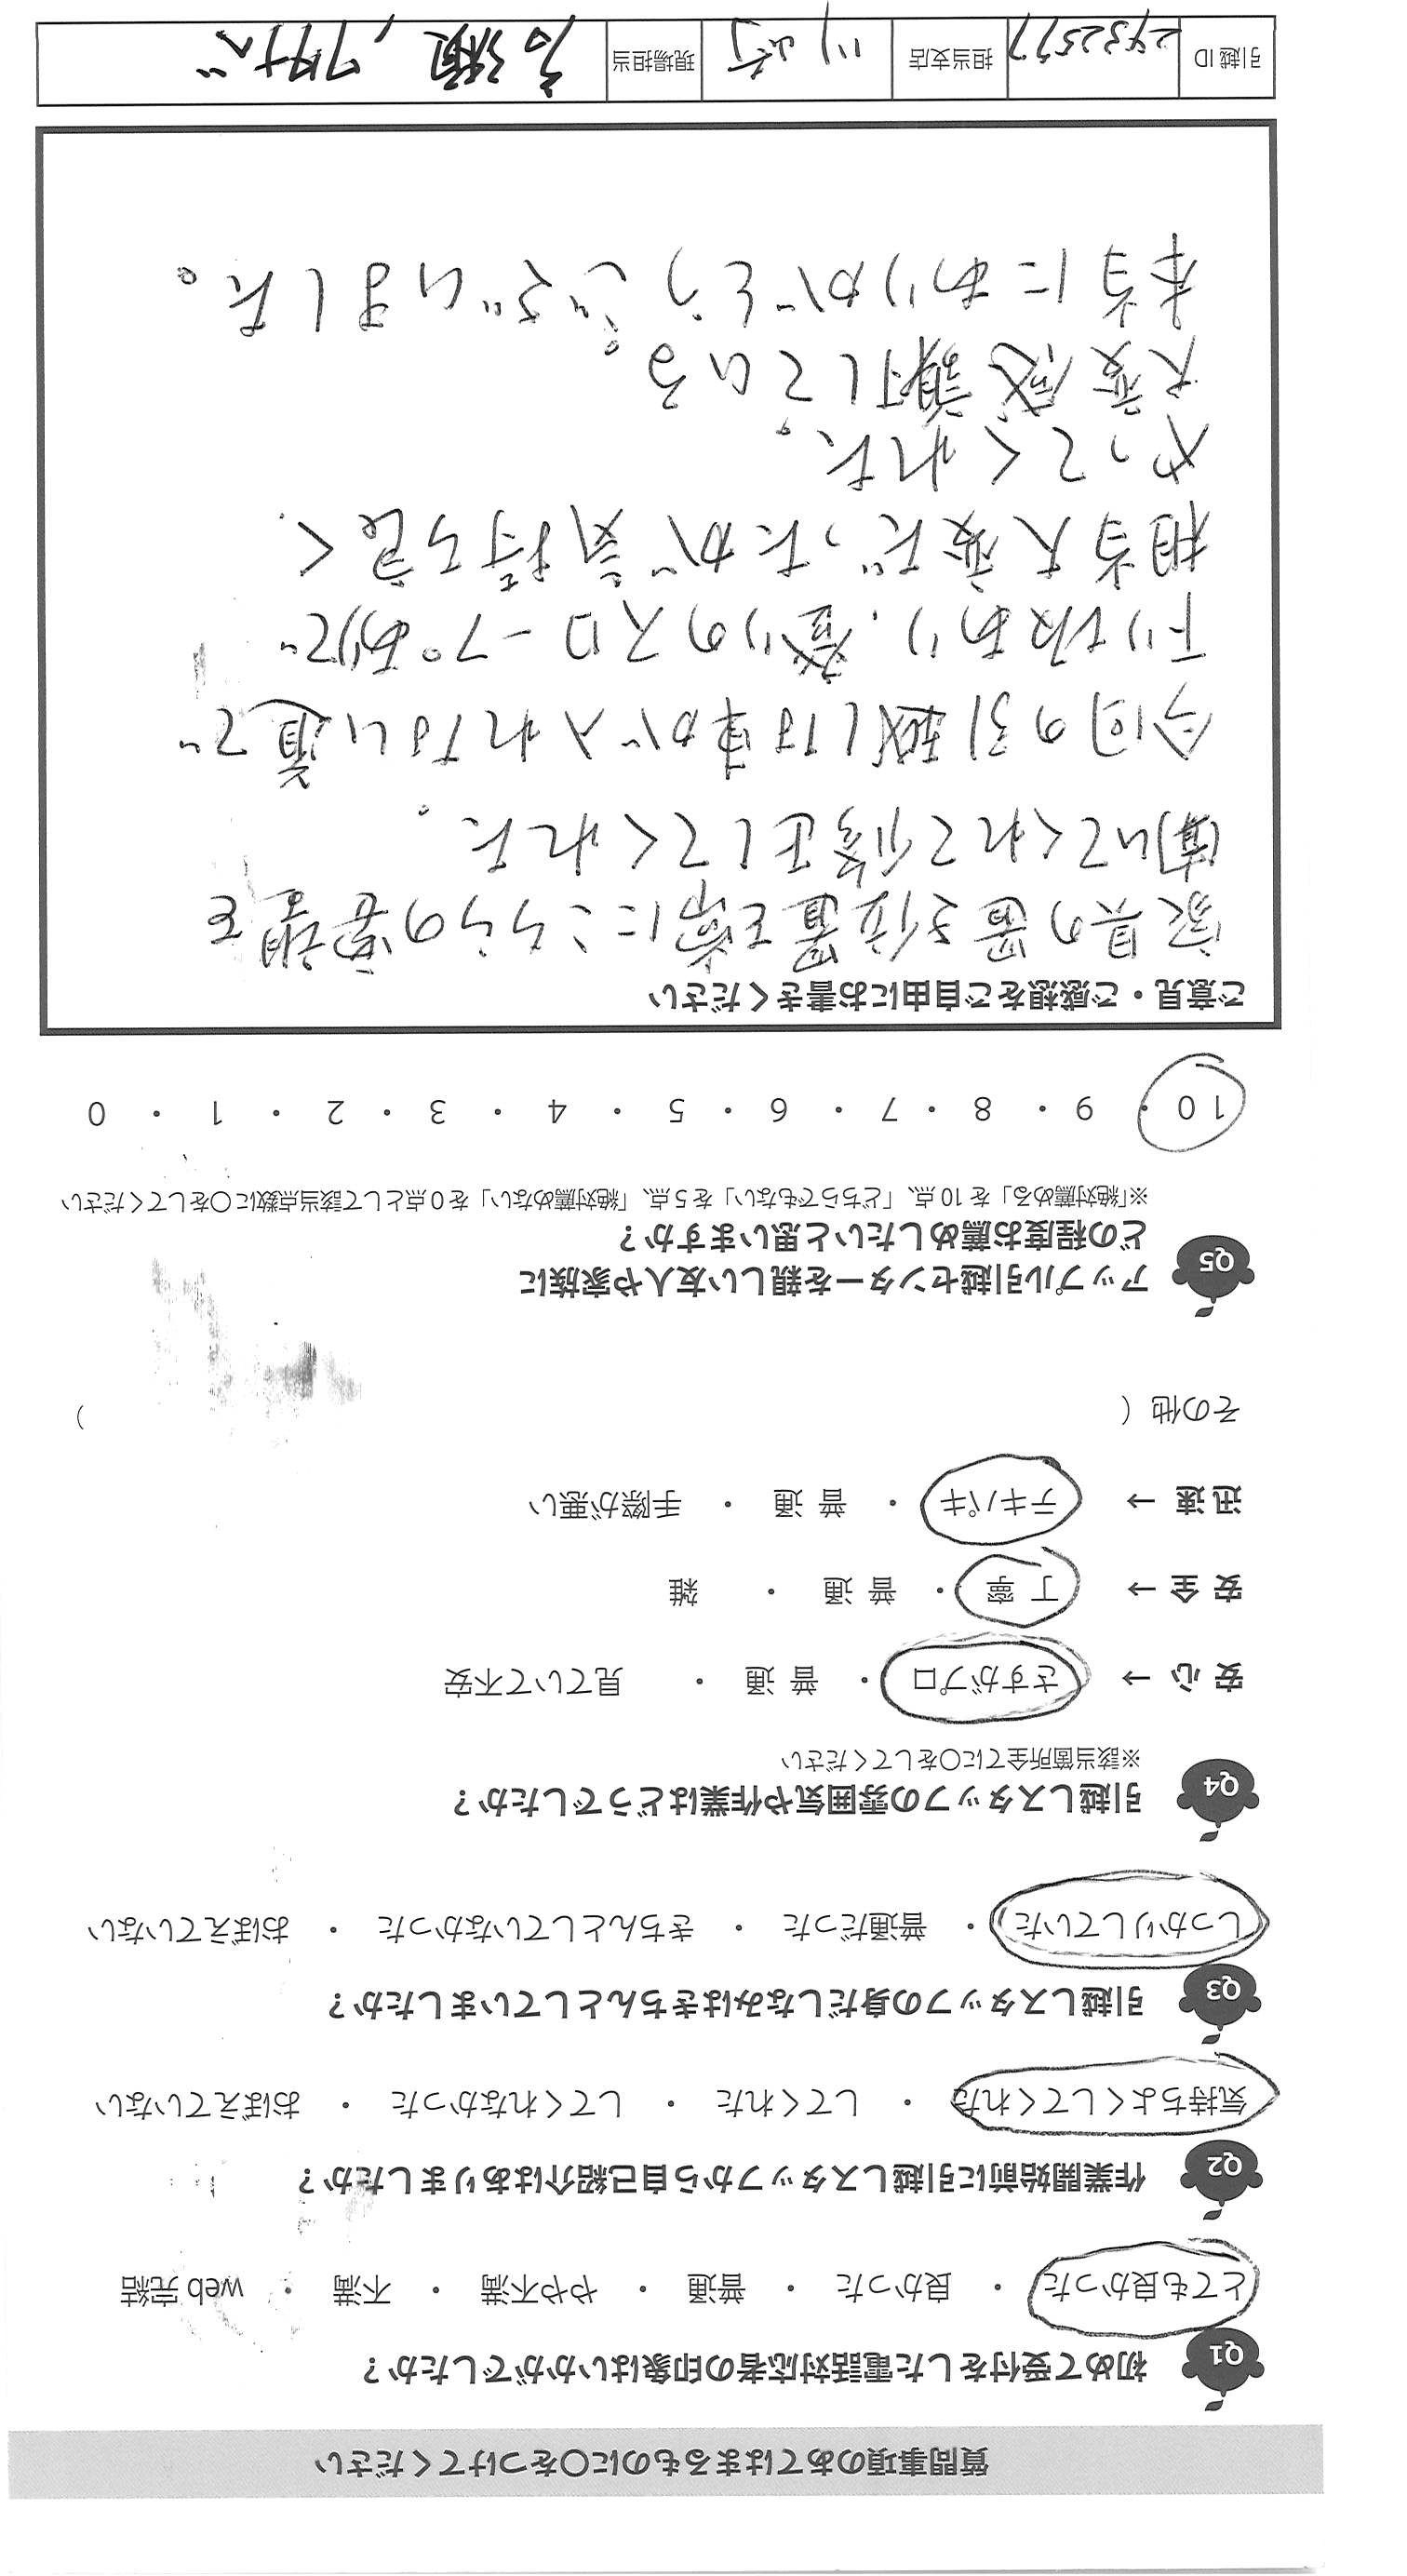 質問事項のあてはまるものに〇をつけてください
Q1 初めて受付をした電話対応者の印象はいかがでしたか？
とても良かった ・ 良かった ・ 普通 ・ やや不満 ・ 不満 ・ web 完結
Q2 作業開始前に引越しスタッフから自己紹介はありましたか？
気持ちよくしてくれた ・ してくれた ・ してくれなかった ・ おぼえていない
Q3 引越しスタッフの身だしなみはきちんとしていましたか？
しっかりしていた ・ 普通だった ・ きちんとしていなかった ・ おぼえていない
Q4 引越しスタッフの雰囲気や作業はどうでしたか？
※該当箇所全てに〇をしてください
安心 → さすがプロ ・ 普通 ・ 見ていて不安
安全 → 丁寧 ・ 普通 ・ 雑
迅速 → テキパキ ・ 普通 ・ 手際が悪い
その他（ ）
Q5 アップル引越センターを親しい友人や家族に
どの程度お薦めしたいと思いますか？
※「絶対薦める」を 10 点、「どちらでもない」を 5 点、「絶対薦めない」を 0 点として該当点数に〇をしてください
10 ・ 9 ・ 8 ・ 7 ・ 6 ・ 5 ・ 4 ・ 3 ・ 2 ・ 1 ・ 0
ご意見・ご感想をご自由にお書きください
家具の置き位置を常にこちらの要望を
聞いてくれて修正してくれた。
今回の引越しは車が入れない道で
下り坂あり、登りのスロープありで
相当大変だったが気持ち良く
やってくれた。
大変感謝している。
本当にありがとうございました。
引越 ID 2432577 担当支店 川崎 現場担当 高瀬,